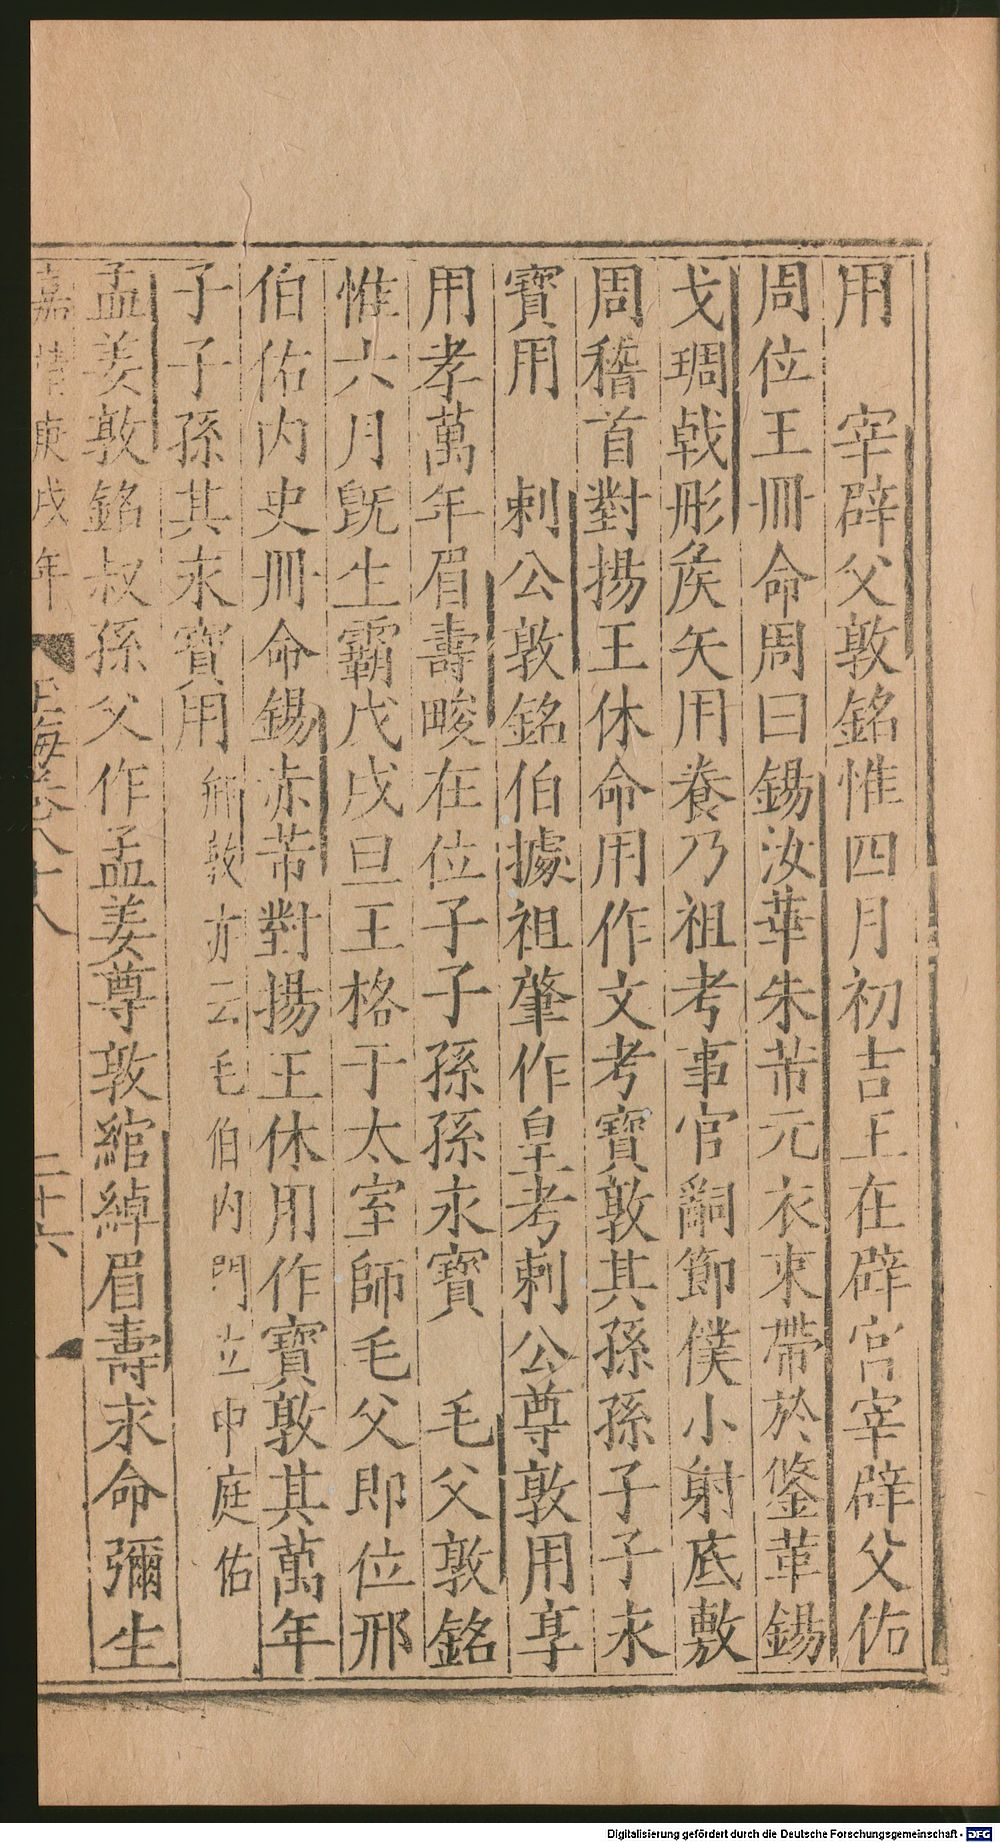 用　宰辟父敦銘惟四月初吉王在辟宮宰辟父佑
周位王冊命周曰錫汝華朱芾元衣束帶於鋚革錫
戈琱戟彤矦矢用養乃祖考事官嗣節僕小射底敷
周稽首對揚王休命用作文考寶敦其孫孫子子永
寶用　剌公敦銘伯據祖肇作皇考剌公尊敦用享
用孝萬年眉壽畯在位子子孫孫永寶　毛父敦銘
惟六月既生霸戊戌旦王格于太室師毛父即位邢
伯佑内史冊命錫赤芾對揚王休用作寶敦其萬年
子子孫其永寶用　𨙻敦亦云毛伯内門立中庭佑
孟姜敦銘叔孫父作孟姜尊敦綰綽眉壽永命彌生
嘉靖庚戌年　玉海卷八十八　二十六
Digitalisierung gefördert durch die Deutsche Forschungsgemeinschaft - DFG